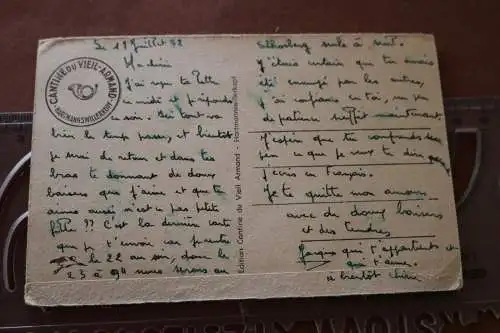 CANTINE DU VIEIL-ARMAND
HARTMANNSWILLERKOPF
Le 19 Juillet 52
Ma chérie
J'ai reçu ta lettre
ce midi et je réponds
ce soir. Ici tout va
bien le temps passe, et bientôt
je serai de retour et dans tes
bras te donnant de doux
baisers que j'aime et que tu
aimes aussi n'est ce pas petite
fille ?? C'est la dernière carte
que je t'envoie car je rentre
le 22 au soir, donc le
23 à 9h nous serons au
Edition Cantine du Vieil Armand - Hartmannswillerkopf
seule à seul.
J'étais certain que tu avais
été envoyé par les autres,
j'ai confiance en toi, un peu
de patience suffit maintenant.
J'espère que tu comprends
peu ce que je veux te dire
j'écris en Français.
Je te quitte mon amour
avec de doux baisers
et des tendres
qui t'appartient et
qui t'aime.
à bientôt chérie